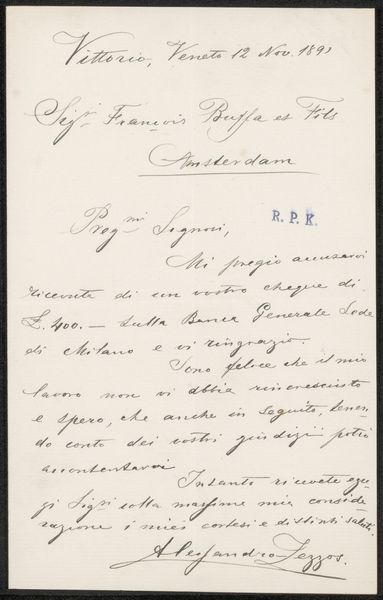 Vittorio, Veneto 12 Nov. 1891
Sigri. François Buffa et Fils
Amsterdam
R. P. K.
Pregmi Signori,
Mi pregio accusarvi
ricevuta di un vostro cheque di
£. 400. — sulla Banca Generale Sede
di Milano e vi ringrazio.
Sono felice che il mio
lavoro non vi abbia rincresciuto
e spero, che anche in seguito, tenen
do conto dei vostri giudizii potrò
accontentarvi
Intanto ricevete egre
gi Sigri colla massima mia conside-
razione i miei cortesi e distinti saluti.
Alessandro Zezzos.